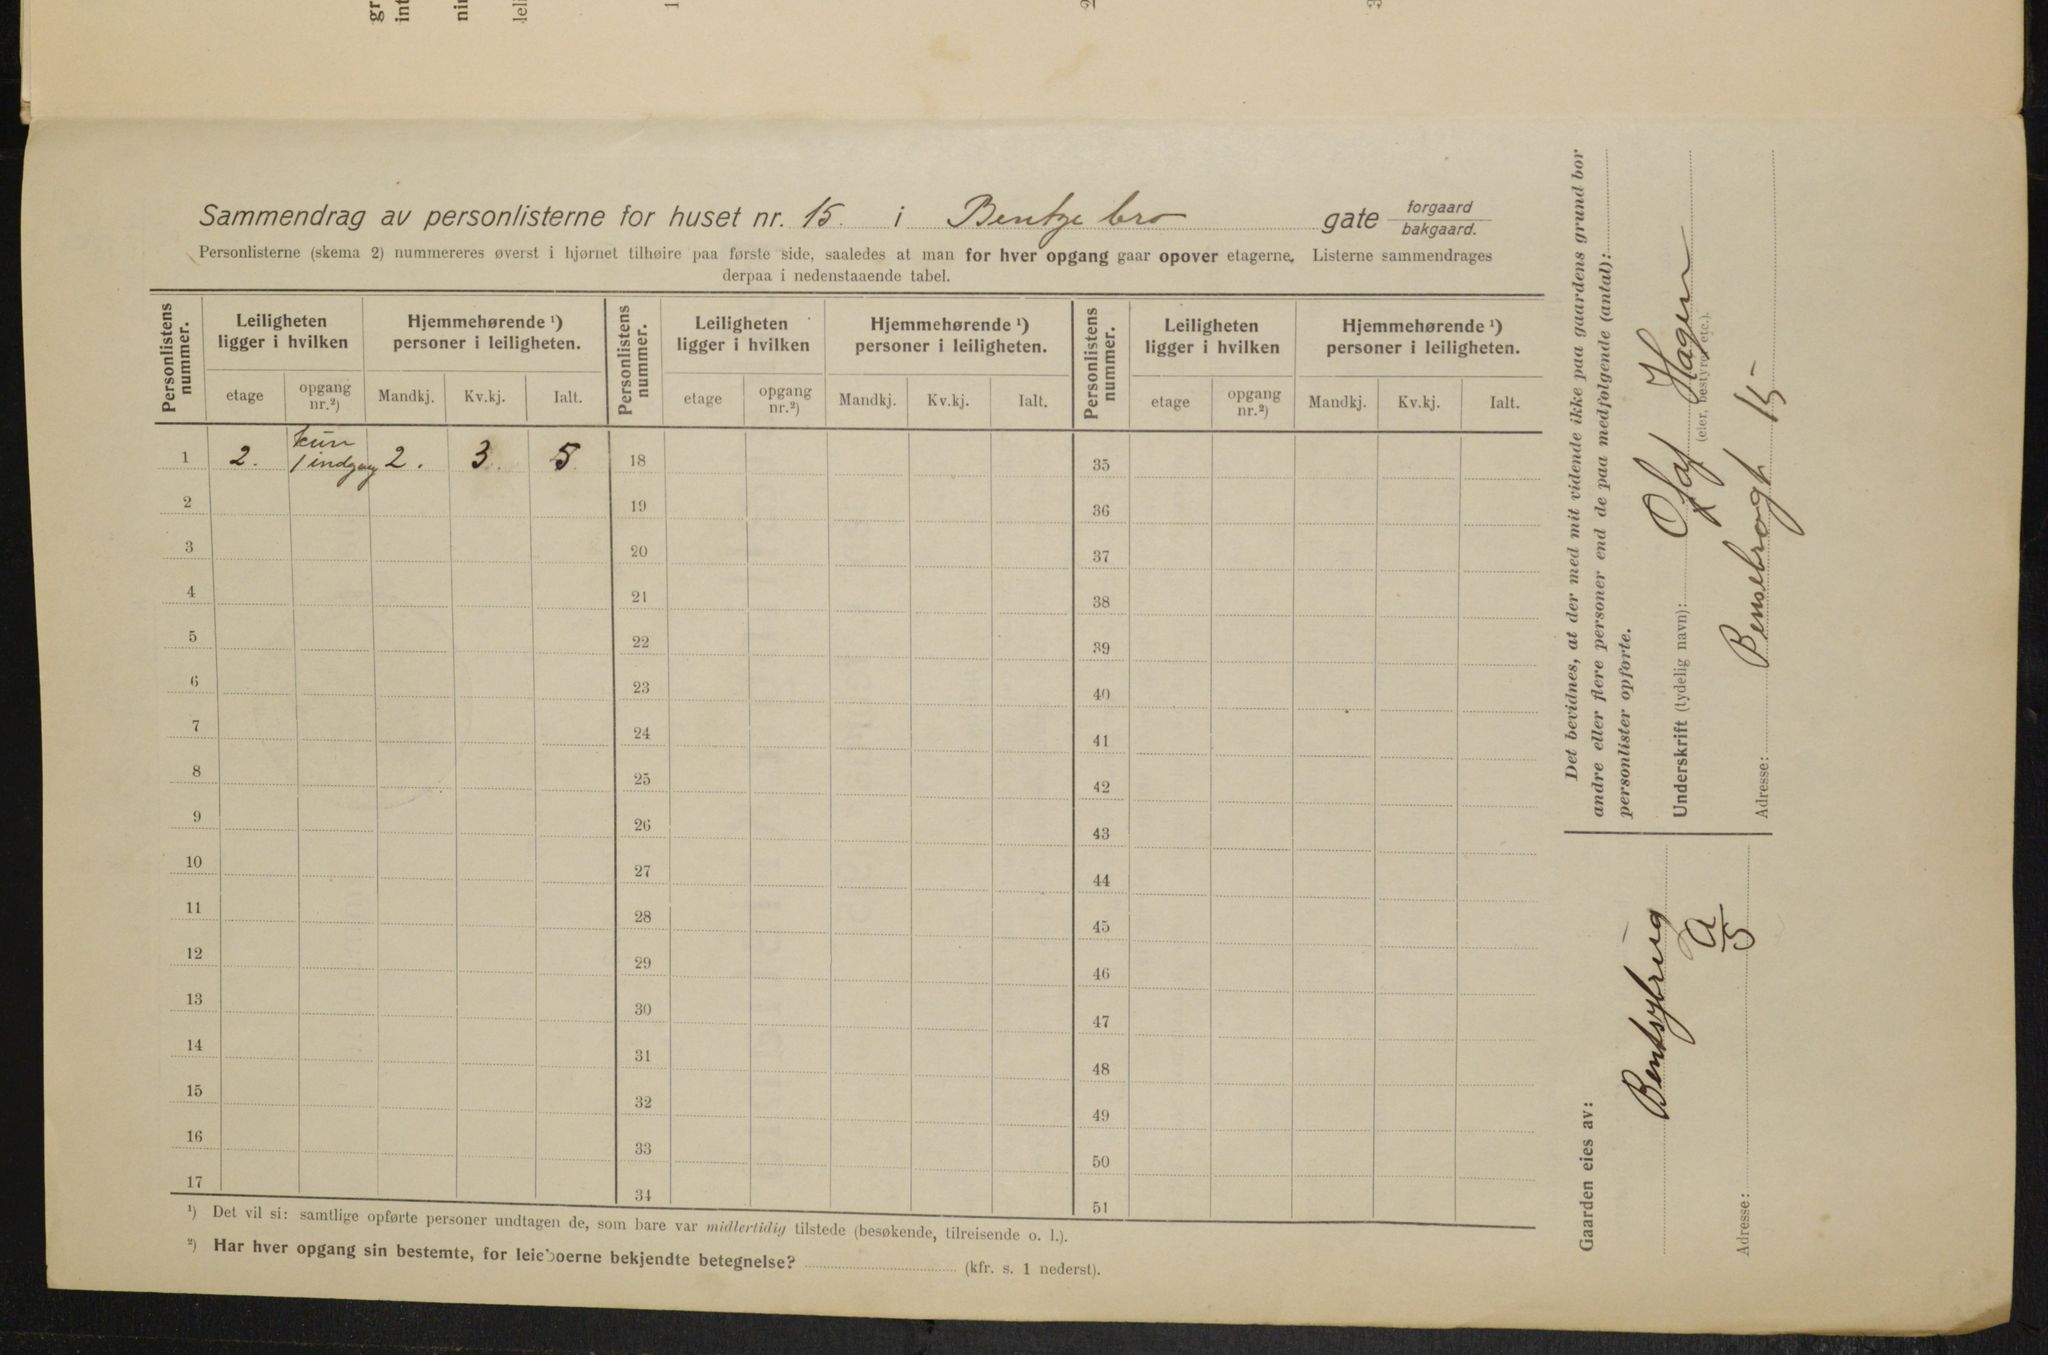 Sammendrag av personlisterne for huset nr. 15. i Bentzebro gate forgaard bakgaard.
Personlisterne (skema 2) nummereres øverst i hjørnet tilhøire paa første side, saaledes at man for hver opgang gaar opover etagerne. Listerne sammendrages
derpaa i nedenstaaende tabel.
Personlistens nummer. Leiligheten ligger i hvilken Hjemmehørende ¹) personer i leiligheten. Personlistens nummer. Leiligheten ligger i hvilken Hjemmehørende ¹) personer i leiligheten. Personlistens nummer. Leiligheten ligger i hvilken Hjemmehørende ¹) personer i leiligheten.
etage opgang nr.²) Mandkj. Kv.kj. Ialt. etage opgang nr.²) Mandkj. Kv.kj. Ialt. etage opgang nr.²) Mandkj. Kv.kj. Ialt.
1 2. kun 1 indgang 2. 3. 5 18 35
2 19 36
3 20 37
4 21 38
5 22 39
6 23 40
7 24 41
8 25 42
9 26 43
10 27 44
11 28 45
12 29 46
13 30 47
14 31 48
15 32 49
16 33 50
17 34 51
¹) Det vil si: samtlige opførte personer undtagen de, som bare var midlertidig tilstede (besøkende, tilreisende o. l.).
²) Har hver opgang sin bestemte, for leieboerne bekjendte betegnelse? (kfr. s. 1 nederst).
Det bevidnes, at der med mit vidende ikke paa gaardens grund bor
andre eller flere personer end de paa medfølgende (antal):
personlister opførte.
Underskrift (tydelig navn): Olaf Hagen
(eier, bestyrer etc.).
Adresse: Bensebrogt 15
Gaarden eies av:
Bentsybrug
Adresse: